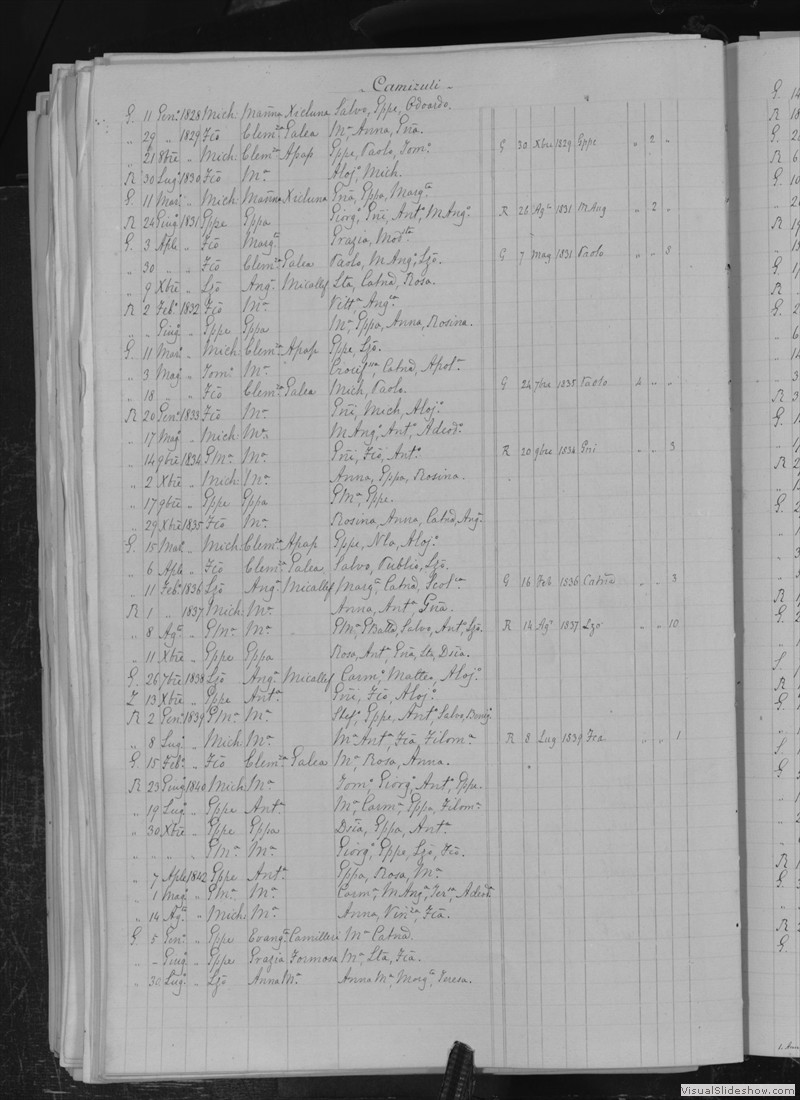 Camizuli
G. 11 Gen.º 1828 Mich. Marina Xicluna Salvo, Gppe, Odoardo.
" 29 " 1829 Fcõ Clem.za Galea M.a Anna, Gña.
" 21 8bre " Mich. Clem.za Apap Gppe, Paolo, Tom.º G 30 Xbre 1829 Gppe " 2 "
R 30 Lug.º 1830 Fcõ M.a Aloj., Mich.
G. 11 Mar. " Mich. Marina Xicluna Gña, Gppa, Marg.ta
R 24 Giug.º 1831 Gppe Gppa Giorg.º, Gñi, Ant.º, M Ang.º R 26 Ag.to 1831 M Ang " 2 "
G. 3 Aple " Fcõ Marg.ta Grazia, Mod.ta
" 30 " " Fcõ Clem.za Galea Paolo, M Ang.º, Lzõ. G 7 Mag 1831 Paolo " " 8
" 9 Xbre " Lzõ Ang.a Micallef Sta, Catnã, Rosa.
R 2 Feb.º 1832 Fcõ M.a Vitt.a Ang.ca
" " Giug.º " Gppe Gppa M.a Gppa, Anna, Rosina.
G. 11 Mar. " Mich. Clem.za Apap Gppe, Lzõ.
" 3 Mag " Tom.º M.a Catnã, Apol.a
" 18 " " Fcõ Clem.za Galea Mich, Paolo. G 24 7bre 1835 Paolo 2 " "
R 20 Gen.º 1833 Fcõ M.a Gñi, Mich, Aloj.º
" 17 Mag " Mich. M.a M Ang.º, Ant.º, Adeod.º
" 14 9bre 1834 GM.a M.a Gñi, Fcõ, Ant.º R 20 9bre 1834 Gni " " 3
" 2 Xbre " Mich. M.a Anna, Gppa, Rosina.
" 17 9bre " Gppe Gppa GM.a, Gppe.
" 29 Xbre 1835 Fcõ M.a Rosina, Anna, Catnã, Ang.a
G. 15 Mar. " Mich. Clem.za Apap Gppe, Nla, Aloj.º
" 6 Aple " Fcõ Clem.za Galea Salvo, Publio, Lzõ.
" 11 Feb.º 1836 Lzõ Ang.a Micallef Marg.a, Catnã, Scol.ca G 16 Feb 1836 Catnã " " 3
R 1 " 1837 Mich. M.a Anna, Ant.a, Gña.
" 8 Ag.to " GM.a M.a GM.a, GBatta, Salvo, Ant.º, Lzõ. R 14 Ag.º 1837 Lzo " " 10
" 11 Xbre " Gppe Gppa Rosa, Ant.a, Gña, Sta, Dcia.
G. 26 7bre 1838 Lzõ Ang.a Micallef Carm.º, Matteo, Aloj.º
Z 13 Xbre " Gppe Ant.a Gñi, Fcõ, Aloj.º
R 2 Gen.º 1839 GM.a M.a Stef.º, Gppe, Ant.º, Salvo,
" 8 Lug.º " Mich. M.a M.a Ant.a, Fcã, Filom.a R 8 Lug 1839 Fca " " 1
G. 15 Feb.º " Fcõ Clem.za Galea M.a, Rosa, Anna.
R 23 Giug.º 1840 Mich. M.a Tom.º, Giorg.º, Ant.º, Gppe.
" 19 Lug. " Gppe Ant.a M.a, Carm.a, Gppa, Filom.a
" 30 Xbre " Gppe Gppa Dcia, Gppa, Ant.a
" " " GM.a M.a Giorg.º, Gppe, Lzõ, Fcõ.
" 7 Aple 1842 Gppe Ant.a Gppa, Rosa, M.a
" 1 Mag.º " GM.a M.a Carm.a, M Ang.a, Ter.a, Adeod.a
" 14 Ag.to " Mich. M.a Anna, Vin.za, Fcã.
G. 5 Gen.º " Gppe Evang.a Camilleri M.a Catnã.
" - Giug.º " Gppe Grazia Formosa M.a, Sta, Fcã.
" 30 Lug.º " Lzõ Anna M.a Anna M.a, Marg.ta, Teresa.
VisualSlideshow.com